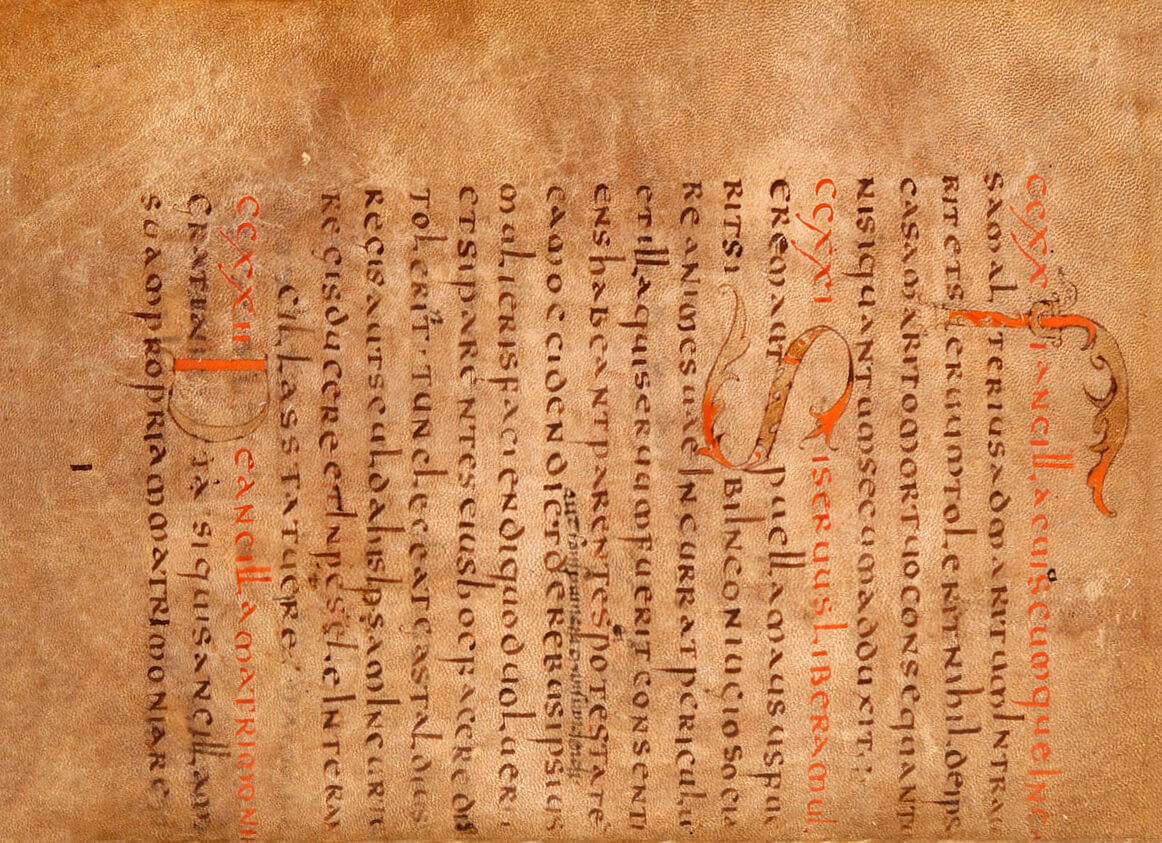 CCXX SI ANCILLA CUIUSCUMQUE IN CA
SAM ALTERIUS AD MARITUM INTRAU
RIT ET SERUUM TOLERIT NIHIL DE IPS
CASA MARITO MORTUO CONSEQUANTU
NISI QUANTUM SECUM ADDUXIT
CCXXI SI SERUUS LIBERA MUL
EREM AUT PUELLAM AUSUS FUE
RIT SIBI IN CONIUGIO SOCIA
RE ANIMES UAE INCURRAT PERICULU
ET ILLA QUI SERUUM FUERIT CONSENTI
ENS HABEANT PARENTES POTESTATE
EAM OCCIDENDI ET DE REBUS IPSIUS
MULIERIS FACIENDI QUOD UOLUERI
ET SI PARENTES EIUS HOC FACERE DIS
TOLERIT · TUNC LECEAT GASTALDIUS
REGIS AUT SCULDAHIS IPSAM IN CURTE
REGIS DUCERE ET IN PESELE INTER AN
CILLAS STATUERE
CCXXII DE ANCILLA MATRIMONII
GRATIA SI QUIS ANCILLAM
SUAM PROPRIAM MATRIMONIARE